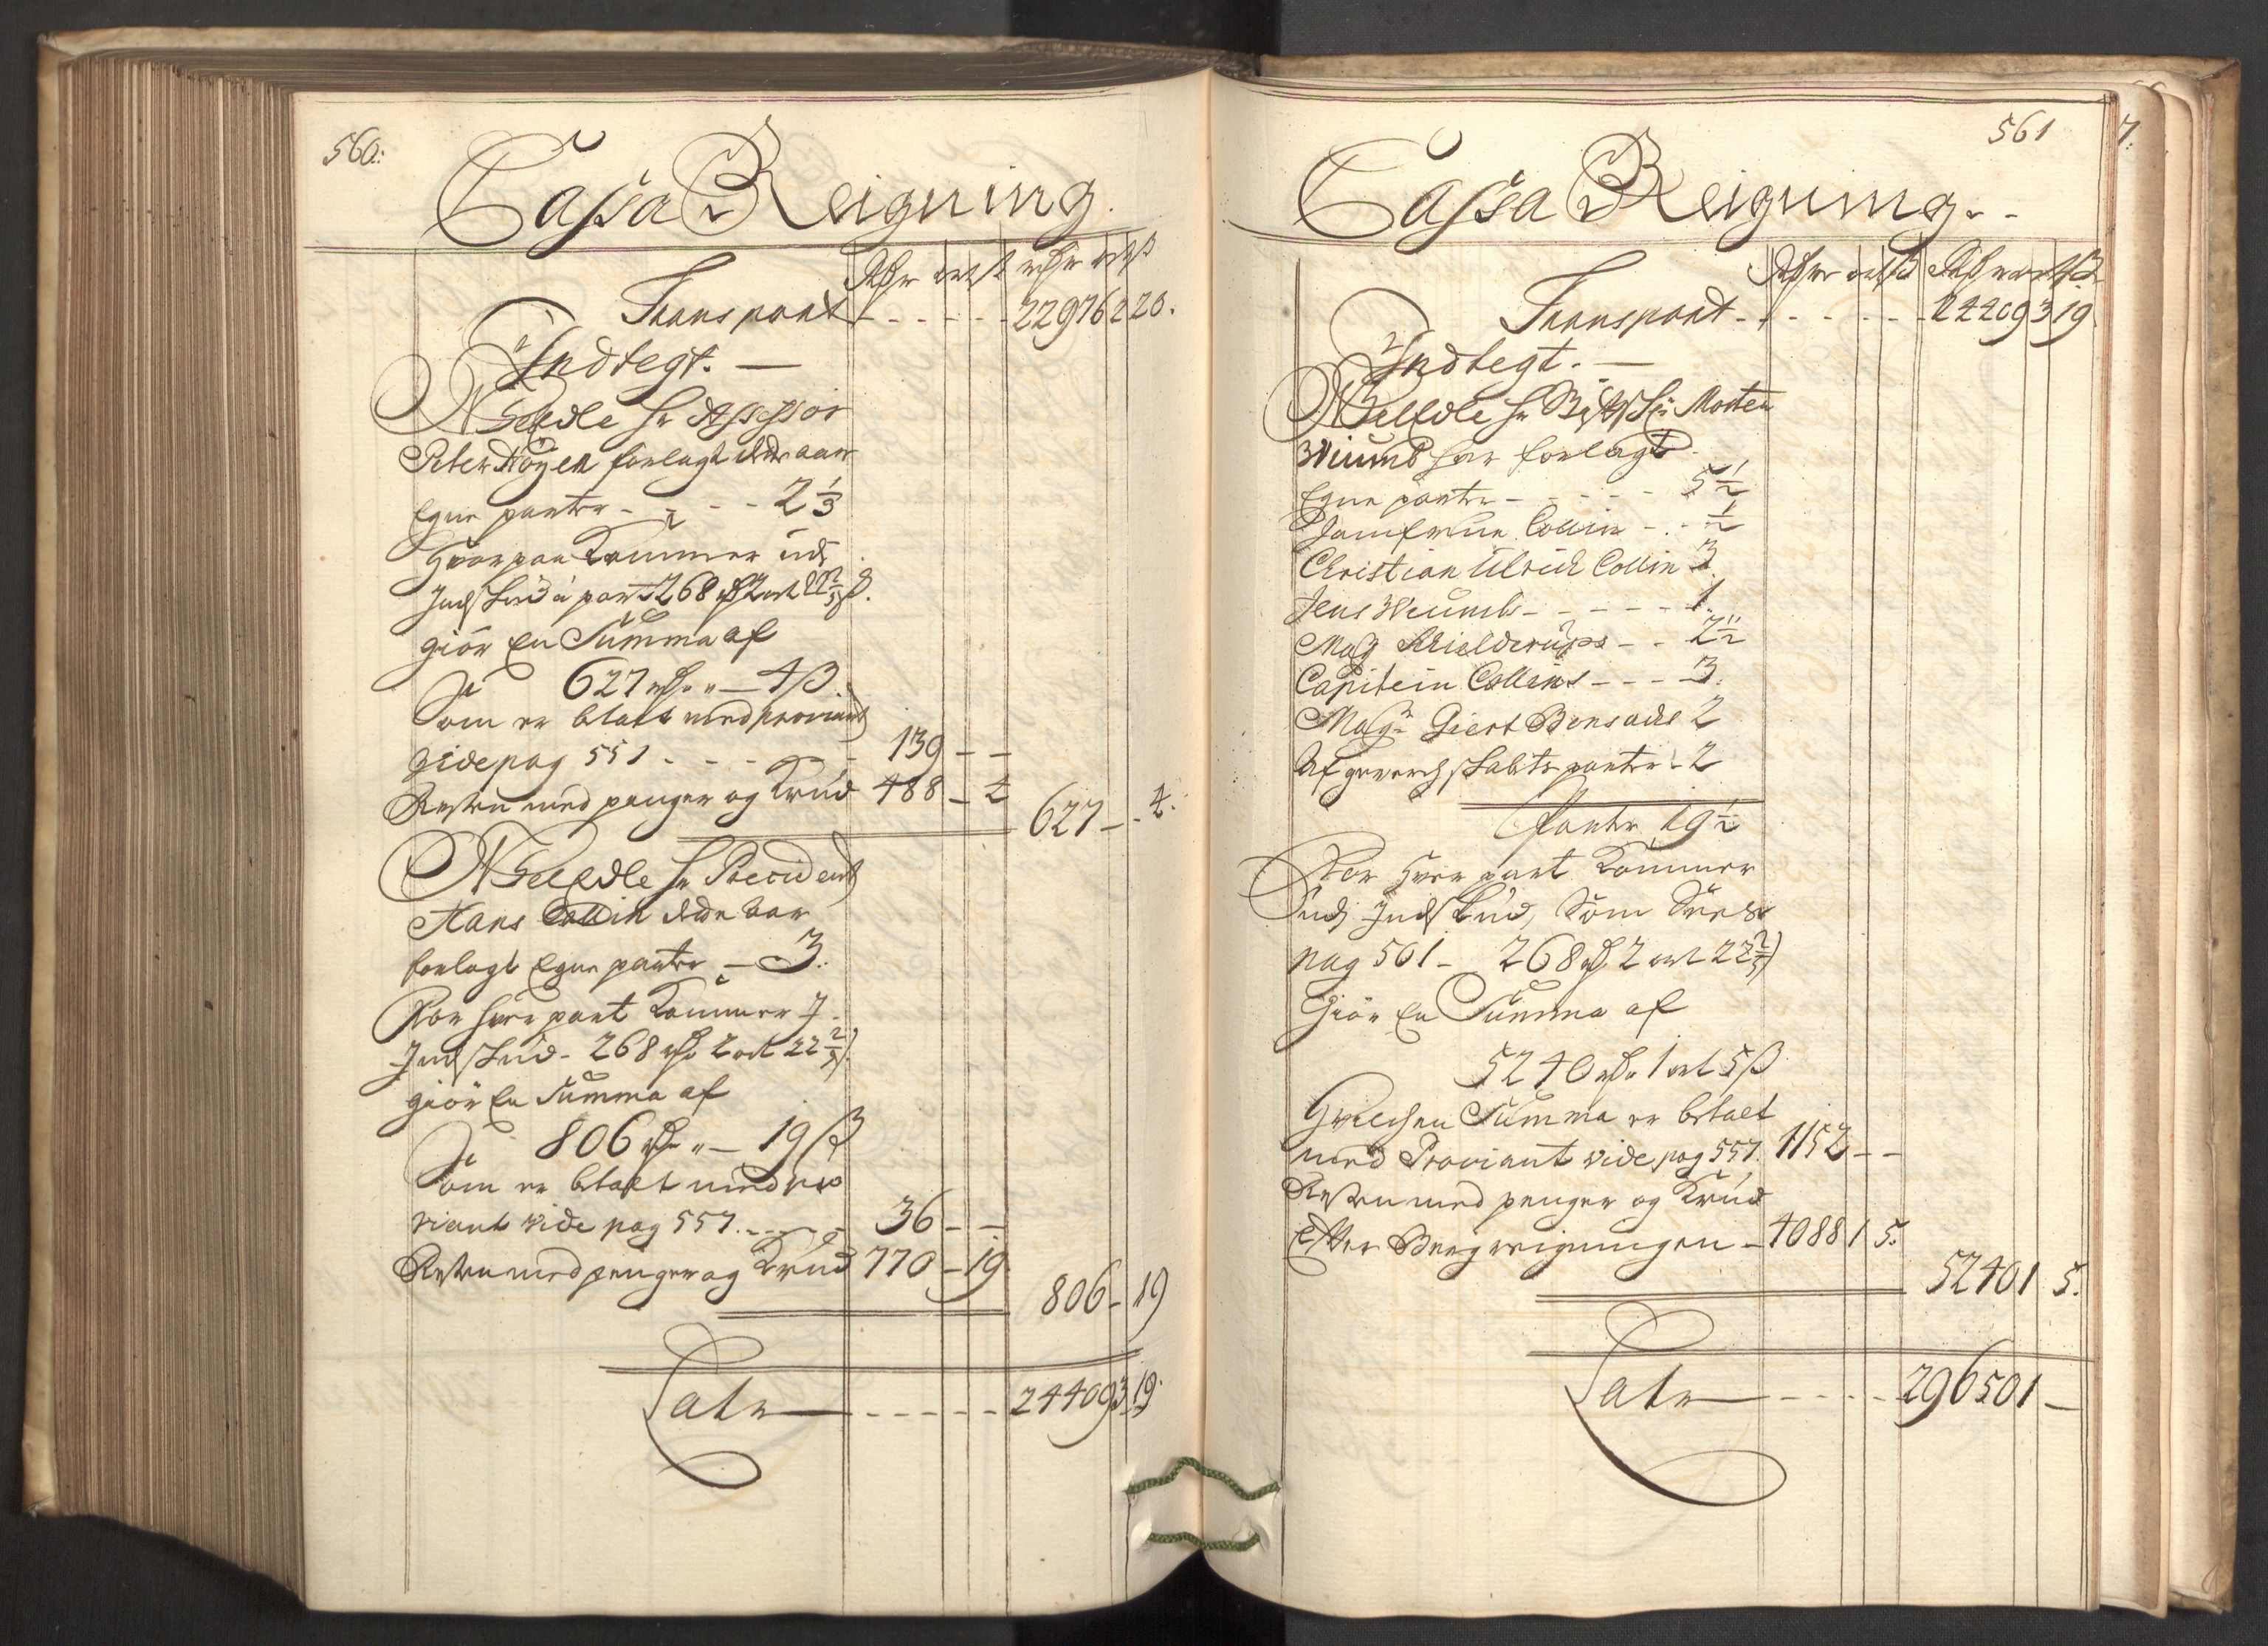 560:
Cassa Reigning.
Rdr ort ß rdr ort ß
Transport - - - - - 22976 2 20.
Indtegt. —
Welædle hr Assessor
Peter Høyer forlagt dette aar
Egne parter - - - 2 1/3
Hvorpaa kommer udj
Indskud á part 268 rdr 2 ort 22 2/5 ß.
giör En Summa af
627 rdr " — 4 ß.
Som er betalt med proviant
vide pag 551 - - - - 139 — —
Resten med penger og Krud 488 — 4
627 — - 4.
Welædle hr President
Hans Collin dette aar
forlagt Egne parter — 3.
For hver part kommer J.
Indskud - 268 rdr 2 ort 22 2/5
giör En Summa af
806 rdr " — 19 ß
Som er betalt med pro
viant vide pag 557 - - - - 36 — —
Resten med penger og Krud 770 — 19
806 — 19
Latr — - - - - - 24409 3 19.
561
Cassa Reigning. -
Rdr ort ß Rdr ort ß
Transport - - - - - - 24409 3 19.
Indtegt. —
Welædle hr Morten
Wiumb har forlagt.
Egne parter - - - - - 5 1/2
Jomfrue Collin - - 1/2
Christian Ulrich Collin 3
Jens Wiumb - - - - - 1.
Mag Kielderups - - 2 1/2
Capitein Collins - - - 3.
Mag: Giert Bensachs 2
Af gewerchskabts parter - 2
Parter 19 1/2
For hver part kommer
Udj Indskud, som sees
pag 561 - 268 rdr 2 ort 22 2/5
Giör En Summa af
5240 rdr 1 ort 5 ß
Hvilchen Summa er betalt
med Proviant vide pag 557. 1152 — —
Resten med penger og Krud
Efter Bergreigningen - 4088 1 5.
5240 1 5.
Latr — - - - - 29650 1 —